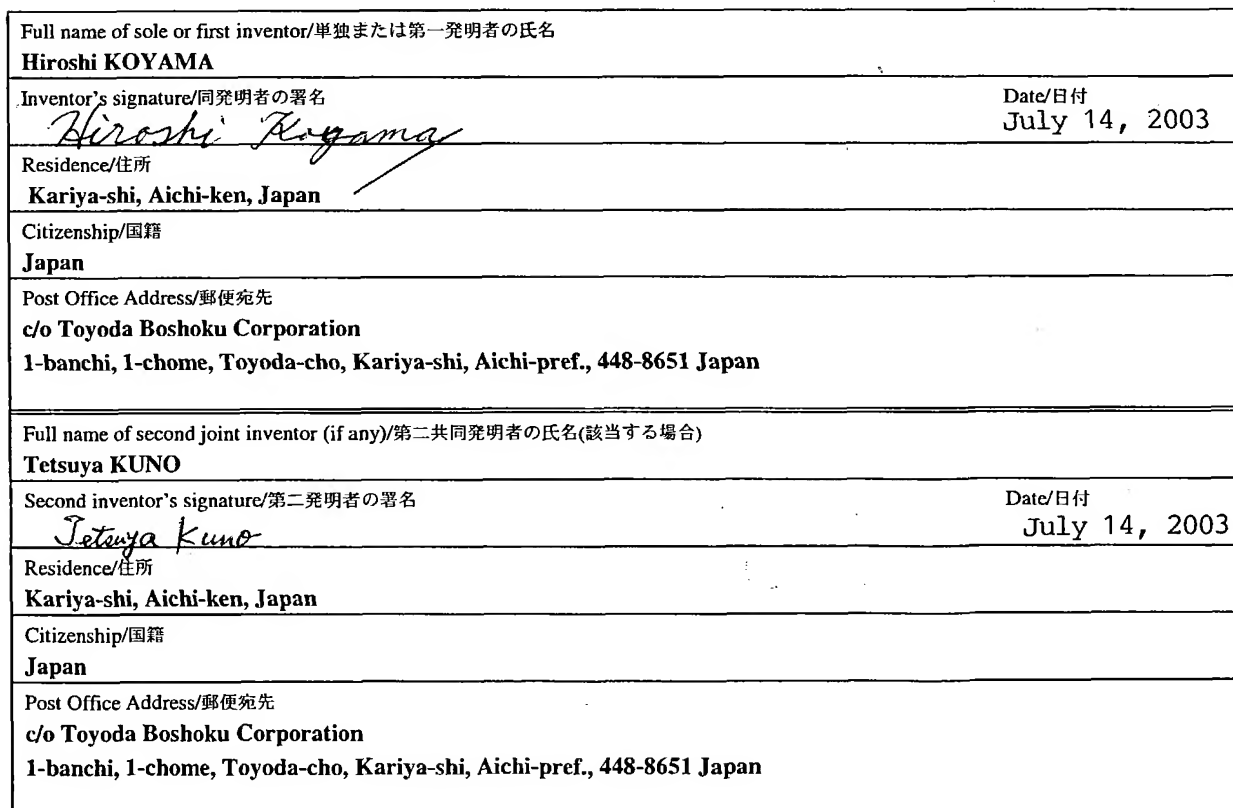 Full name of sole or first inventor/単独または第一発明者の氏名
Hiroshi KOYAMA
Inventor's signature/同発明者の署名 Date/日付
Hiroshi Koyama July 14, 2003
Residence/住所
Kariya-shi, Aichi-ken, Japan
Citizenship/国籍
Japan
Post Office Address/郵便宛先
c/o Toyoda Boshoku Corporation
1-banchi, 1-chome, Toyoda-cho, Kariya-shi, Aichi-pref., 448-8651 Japan
Full name of second joint inventor (if any)/第二共同発明者の氏名(該当する場合)
Tetsuya KUNO
Second inventor's signature/第二発明者の署名 Date/日付
Tetsuya Kuno July 14, 2003
Residence/住所
Kariya-shi, Aichi-ken, Japan
Citizenship/国籍
Japan
Post Office Address/郵便宛先
c/o Toyoda Boshoku Corporation
1-banchi, 1-chome, Toyoda-cho, Kariya-shi, Aichi-pref., 448-8651 Japan